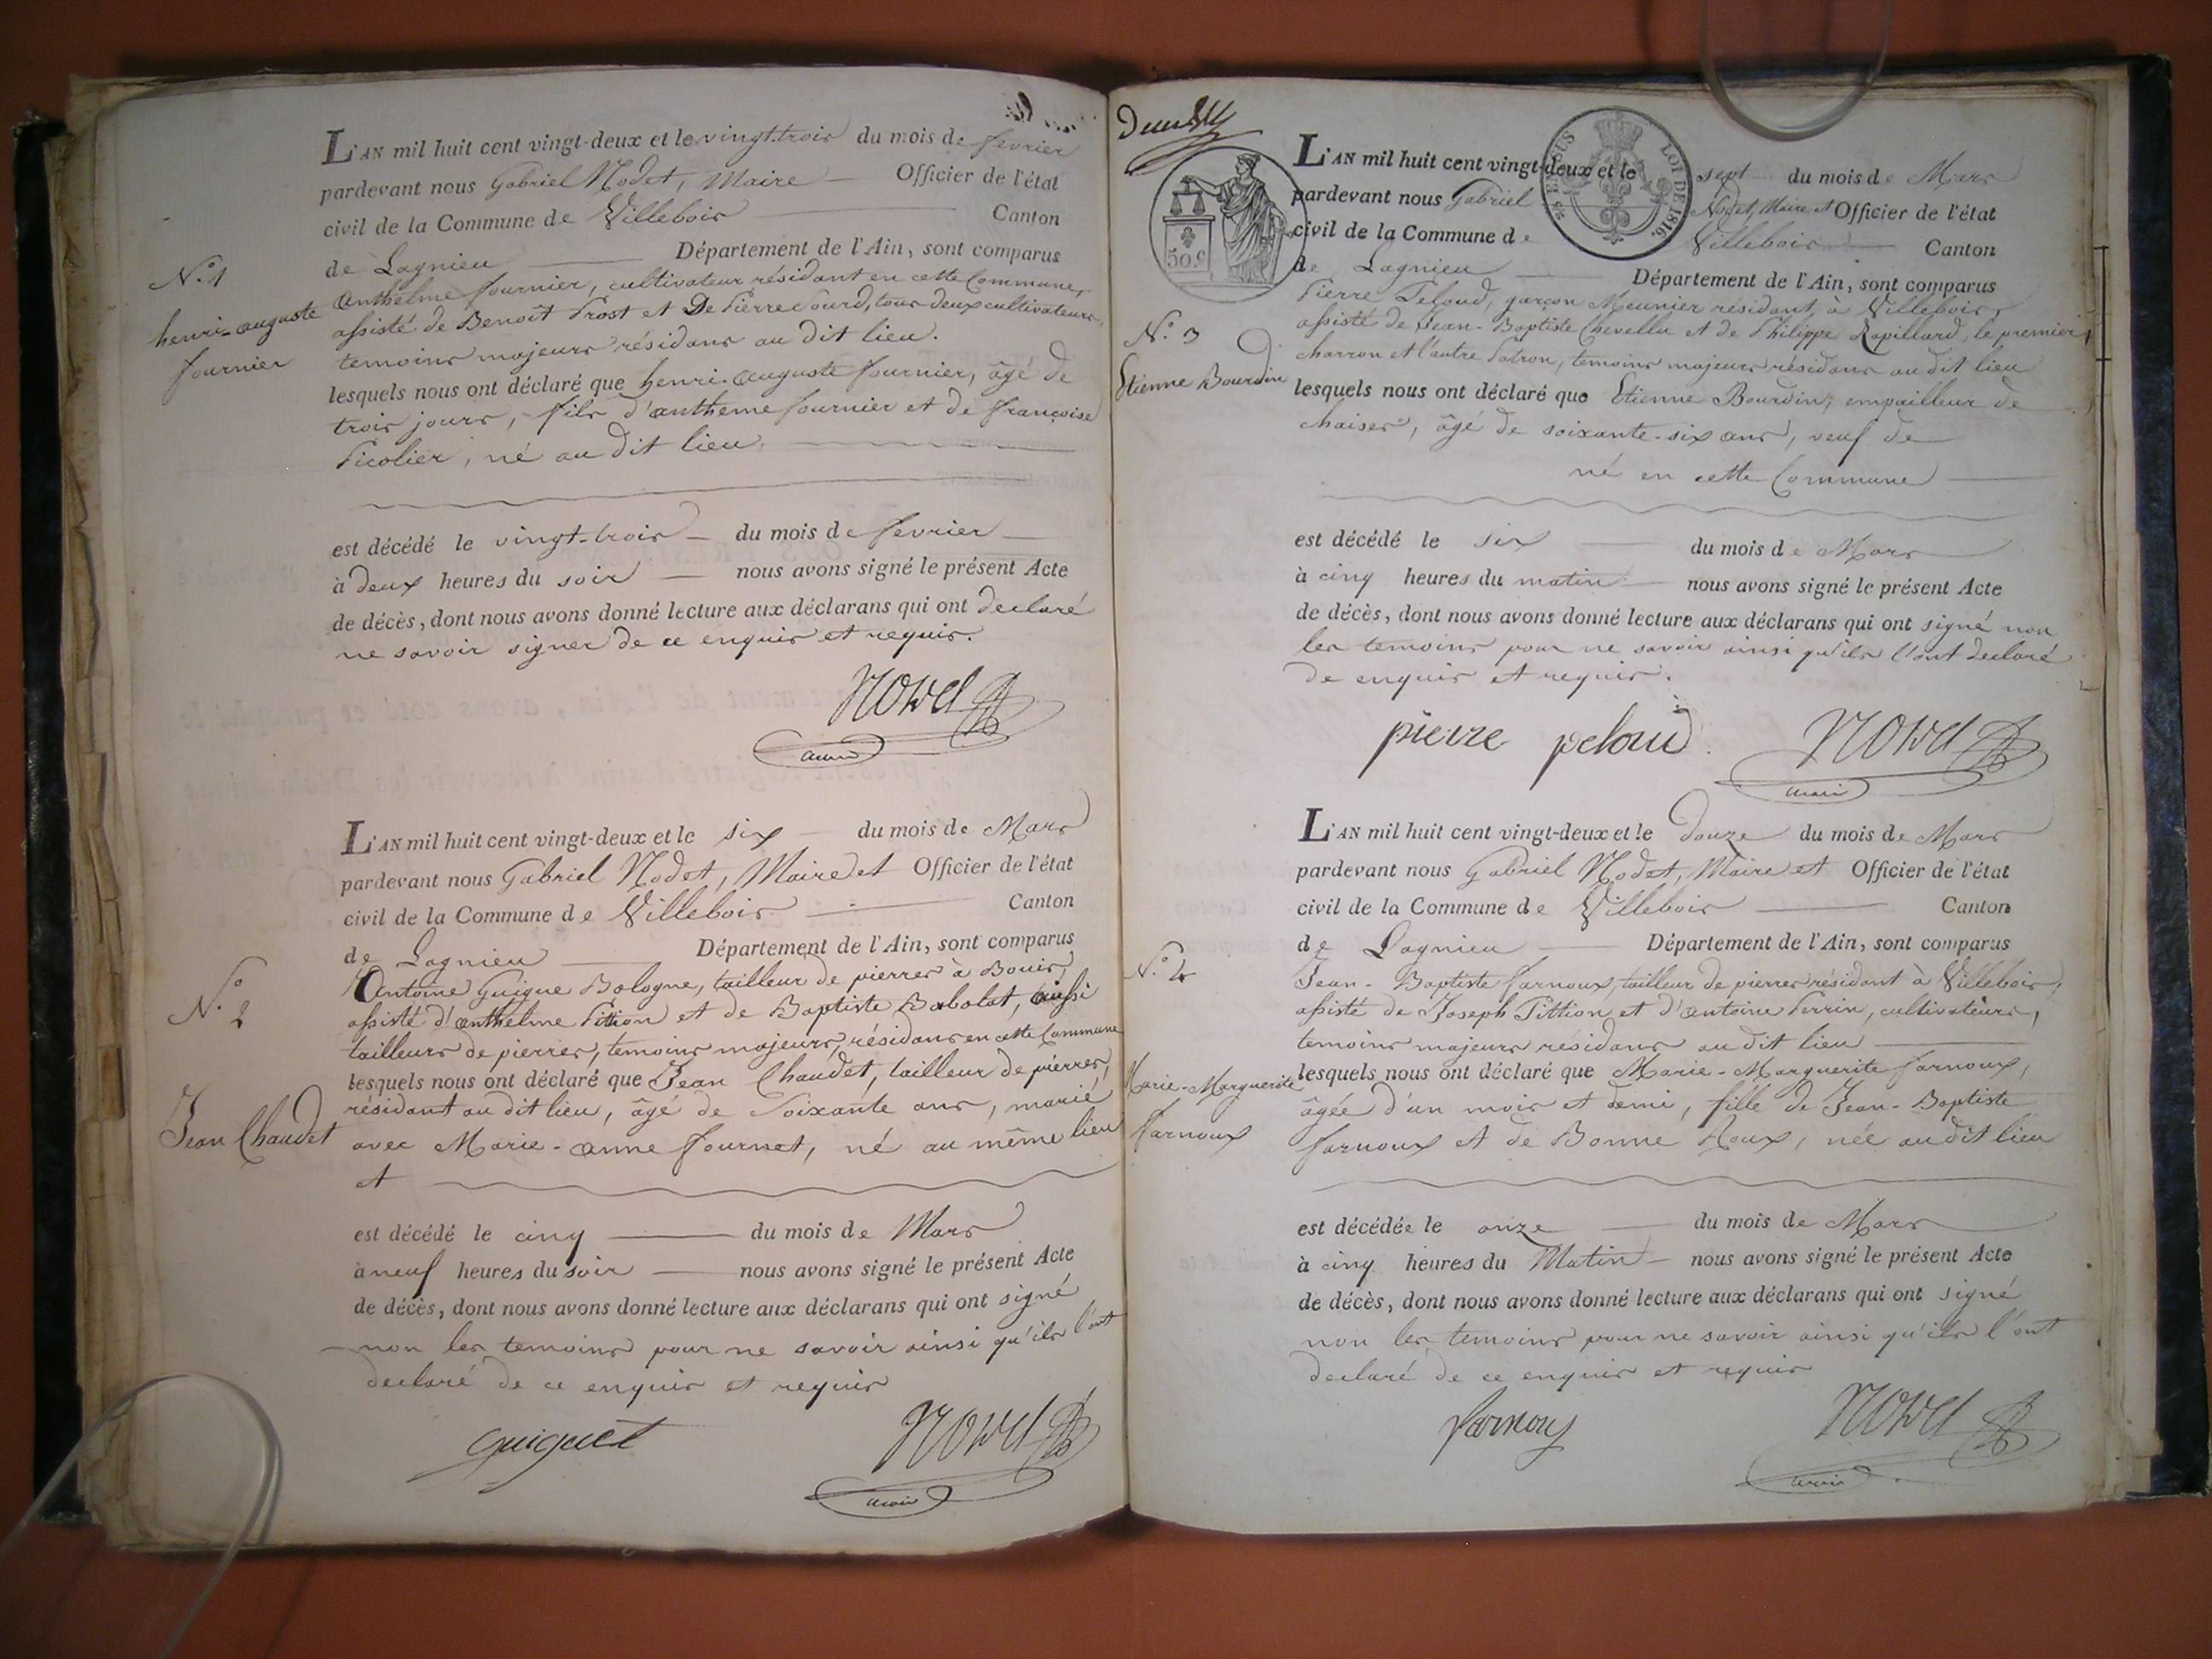 L'AN mil huit cent vingt-deux et le vingt trois du mois de fevrier
pardevant nous Gabriel Nodet, Maire Officier de l'état
civil de la Commune de Villebois Canton
de Lagnieu Département de l'Ain, sont comparus
N.o 1
henri-auguste
fournier
anthelme fournier, cultivateur résidant en cette Commune,
assisté de Benoît Prost et De Pierre Courd, tous deux cultivateurs,
temoins majeurs résidans au dit lieu.
lesquels nous ont déclaré que henri-auguste fournier, âgé de
trois jours, fils d'antheme fournier et de françoise
Picolier, né au dit lieu.
est décédé le vingt-trois du mois de fevrier
à deux heures du soir nous avons signé le présent Acte
de décès, dont nous avons donné lecture aux déclarans qui ont declaré
ne savoir signer de ce enquis et requis.
Nodet
maire
L'AN mil huit cent vingt-deux et le six du mois de Mars
pardevant nous Gabriel Nodet, Maire et Officier de l'état
civil de la Commune de Villebois Canton
de Lagnieu Département de l'Ain, sont comparus
N.o 2
Jean Chaudet
Antoine Guigue Bologne, tailleur de pierres à Bouis,
assisté d'anthelme Pittion et de Baptiste Babolat, aussi
tailleurs de pierres, temoins majeurs, résidans en cette Commune
lesquels nous ont déclaré que Jean Chaudet, tailleur de pierres,
résidant au dit lieu, âgé de soixante ans, marié
avec Marie-anne fournet, né au même lieu
et
est décédé le cinq du mois de Mars
à neuf heures du soir nous avons signé le présent Acte
de décès, dont nous avons donné lecture aux déclarans qui ont signé
non les temoins pour ne savoir ainsi qu'ils l'ont
declaré de ce enquis et requis
Guiguet
Nodet
maire
50.c
25 EN SUS
LOI DE 1816.
L'AN mil huit cent vingt-deux et le sept du mois de Mars
pardevant nous Gabriel Nodet, Maire et Officier de l'état
civil de la Commune de Villebois Canton
de Lagnieu Département de l'Ain, sont comparus
N.o 3
Etienne Bourdin
Pierre Peloud, garçon Meunier résidant à Villebois,
assisté de Jean-Baptiste Chevellu et de Philippe Rapillard, le premier
charron et l'autre Patron, temoins majeurs résidans au dit lieu
lesquels nous ont déclaré que Etienne Bourdin, empailleur de
chaises, âgé de soixante-six ans, veuf de
né en cette Commune
est décédé le six du mois de Mars
à cinq heures du matin nous avons signé le présent Acte
de décès, dont nous avons donné lecture aux déclarans qui ont signé non
les temoins pour ne savoir ainsi qu'ils l'ont declaré
de enquis et requis.
pierre peloud
Nodet
maire
L'AN mil huit cent vingt-deux et le douze du mois de Mars
pardevant nous Gabriel Nodet, Maire et Officier de l'état
civil de la Commune de Villebois Canton
de Lagnieu Département de l'Ain, sont comparus
N.o 4
Marie-Marguerite
farnoux
Jean-Baptiste farnoux, tailleur de pierres résidant à Villebois,
assisté de Joseph Pittion et d'antoine Perrin, cultivateurs,
temoins majeurs résidans au dit lieu
lesquels nous ont déclaré que Marie-Marguerite farnoux,
âgée d'un mois et demi, fille de Jean-Baptiste
farnoux et de Bonne Roux, née au dit lieu
est décédée le onze du mois de Mars
à cinq heures du Matin nous avons signé le présent Acte
de décès, dont nous avons donné lecture aux déclarans qui ont signé
non les temoins pour ne savoir ainsi qu'ils l'ont
declaré de ce enquis et requis
farnoux
Nodet
maire